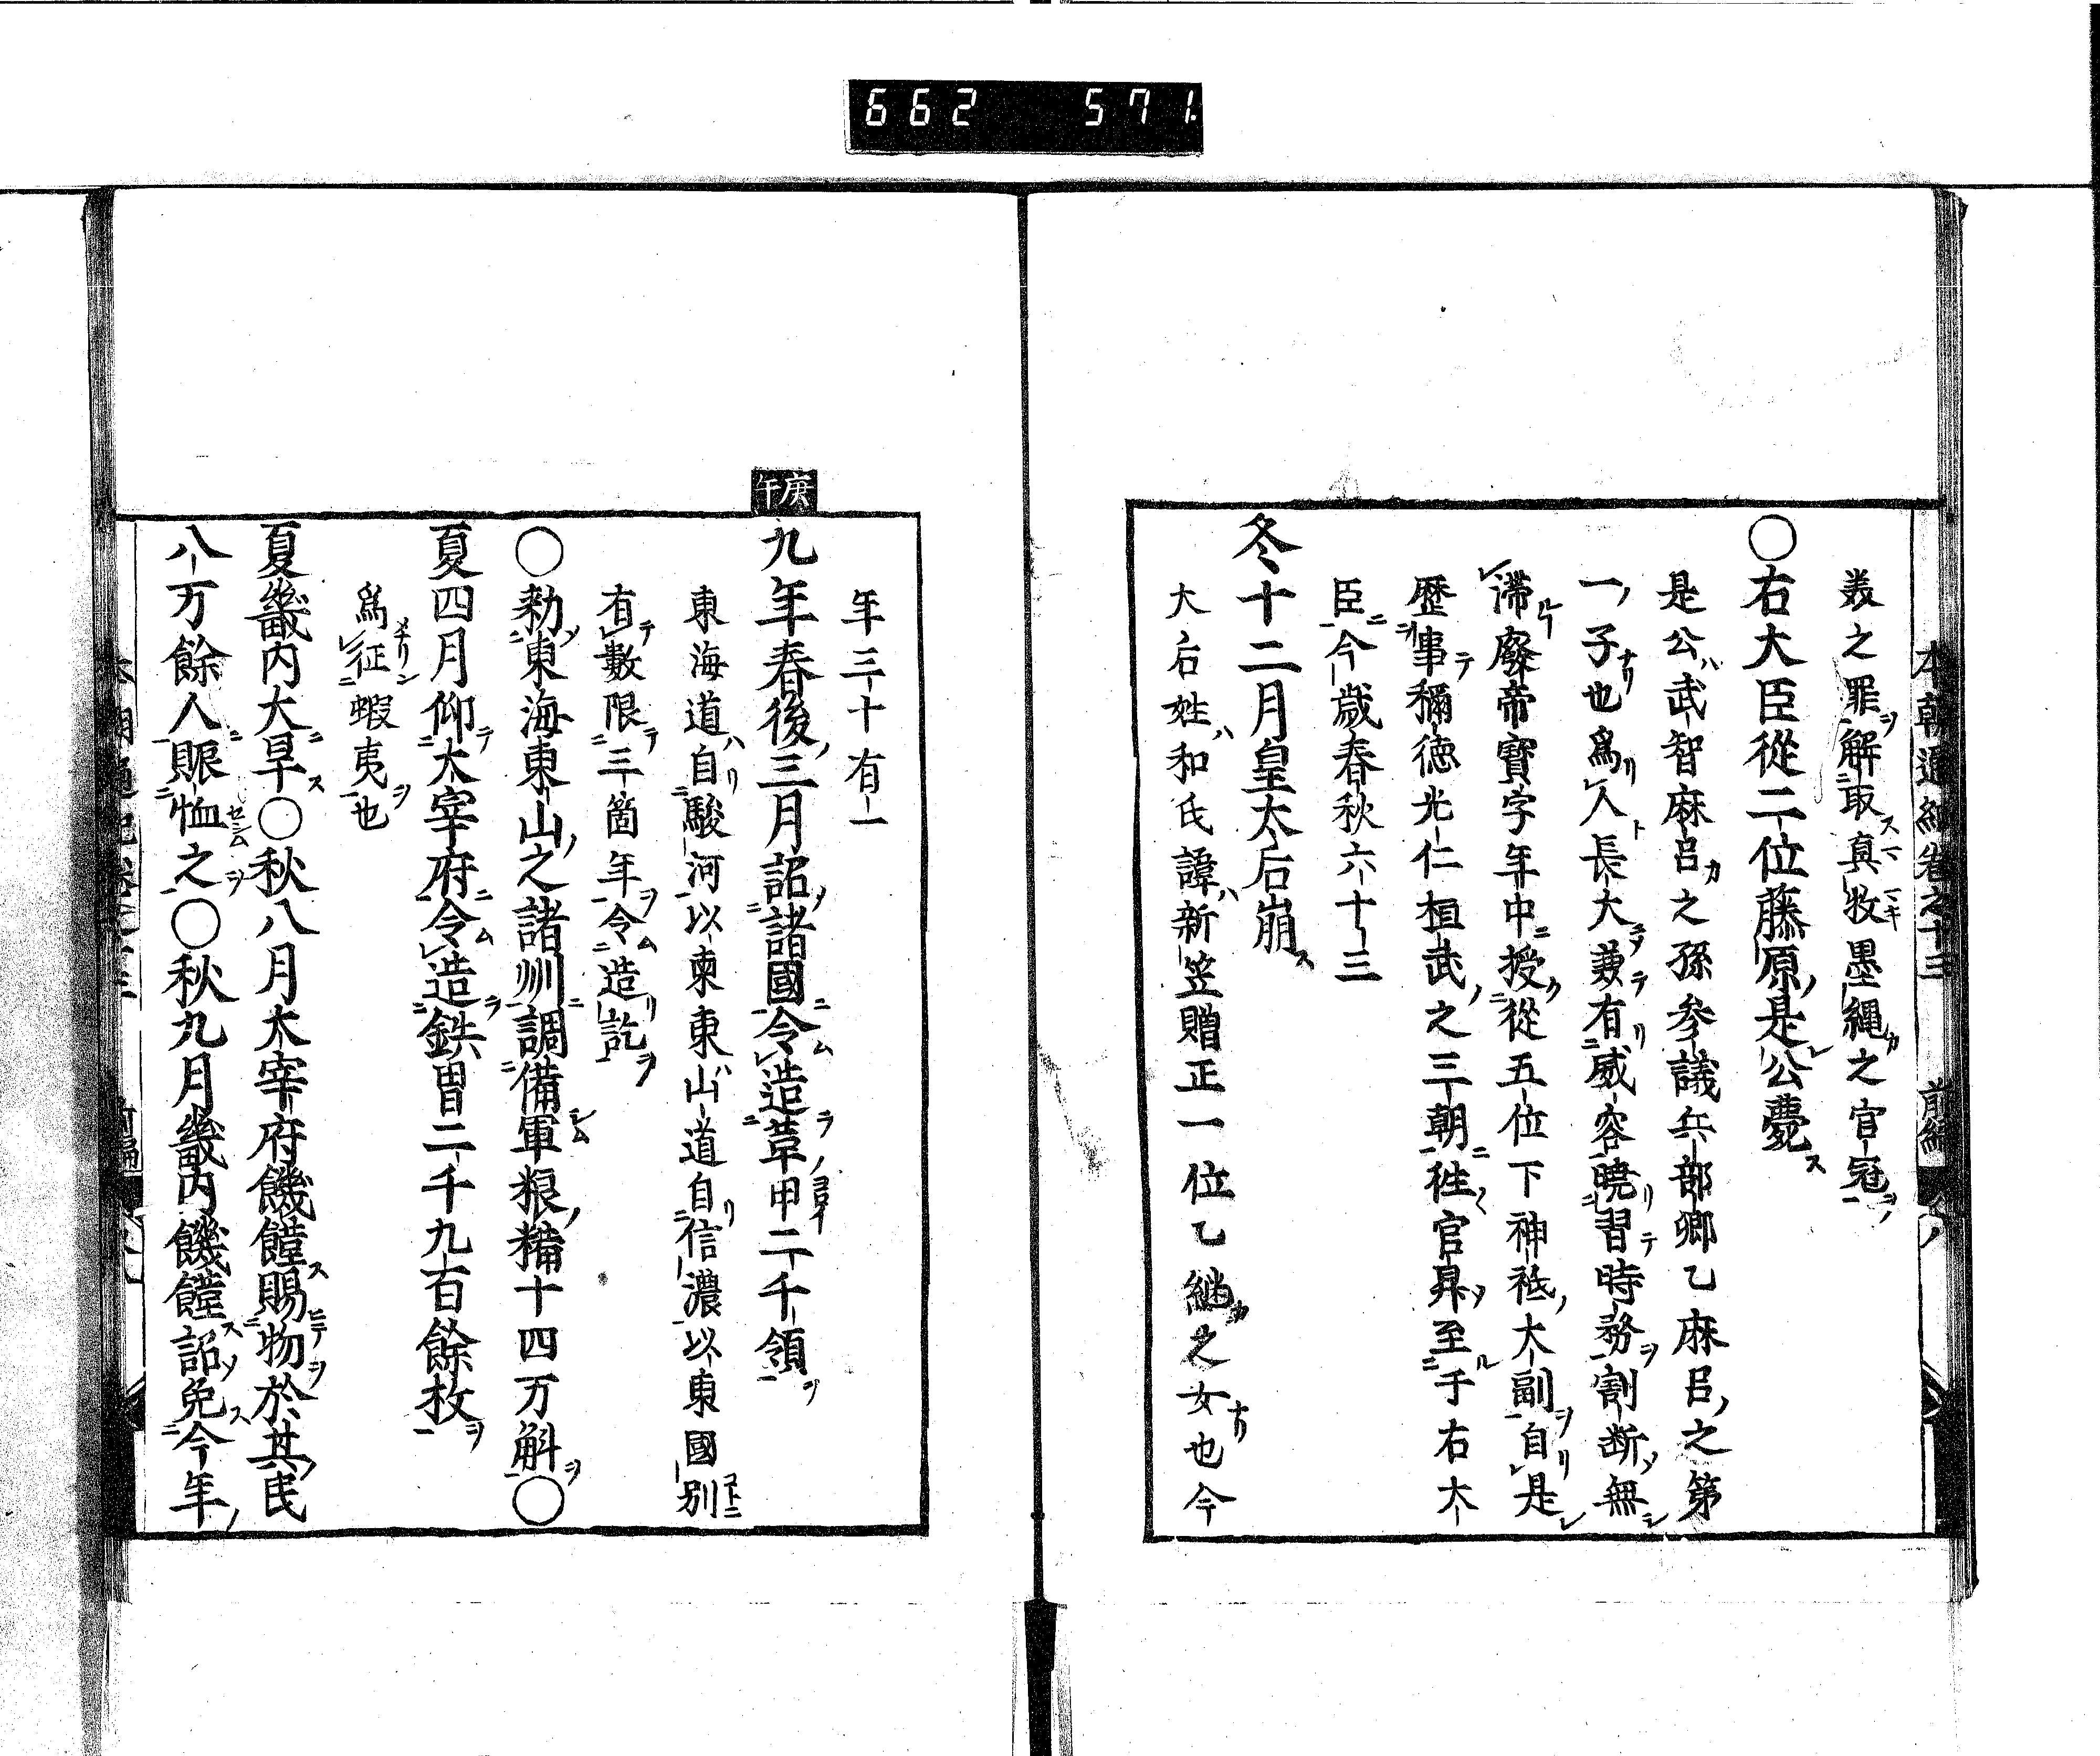 662 571.
本朝通紀卷之十三 前編
美之罪解取真牧墨縄之官冠
○右大臣從二位藤原是公薨
是公武智麻呂之孫参議兵部卿乙麻呂之第
一子也爲人長大兼有威容曉習時務割断無
滞廢帝寶字年中授從五位下神祇大副自是
歷事稱徳光仁桓武之三朝徃官昇至于右大
臣今歳春秋六十三
冬十二月皇太后崩
大后姓和氏諱新笠贈正一位乙継之女也今
年三十有一
庚午
九年春後三月詔諸國令造革甲二千領
東海道自駿河以東東山道自信濃以東國別
有數限三箇年令造訖
○勅東海東山之諸州調備軍粮糒十四万斛○
夏四月仰太宰府令造鉄冑二千九百餘枚
爲征蝦夷也
夏畿内大旱○秋八月太宰府饑饉賜物於其民
八万餘人賑恤之○秋九月畿内饑饉詔免今年